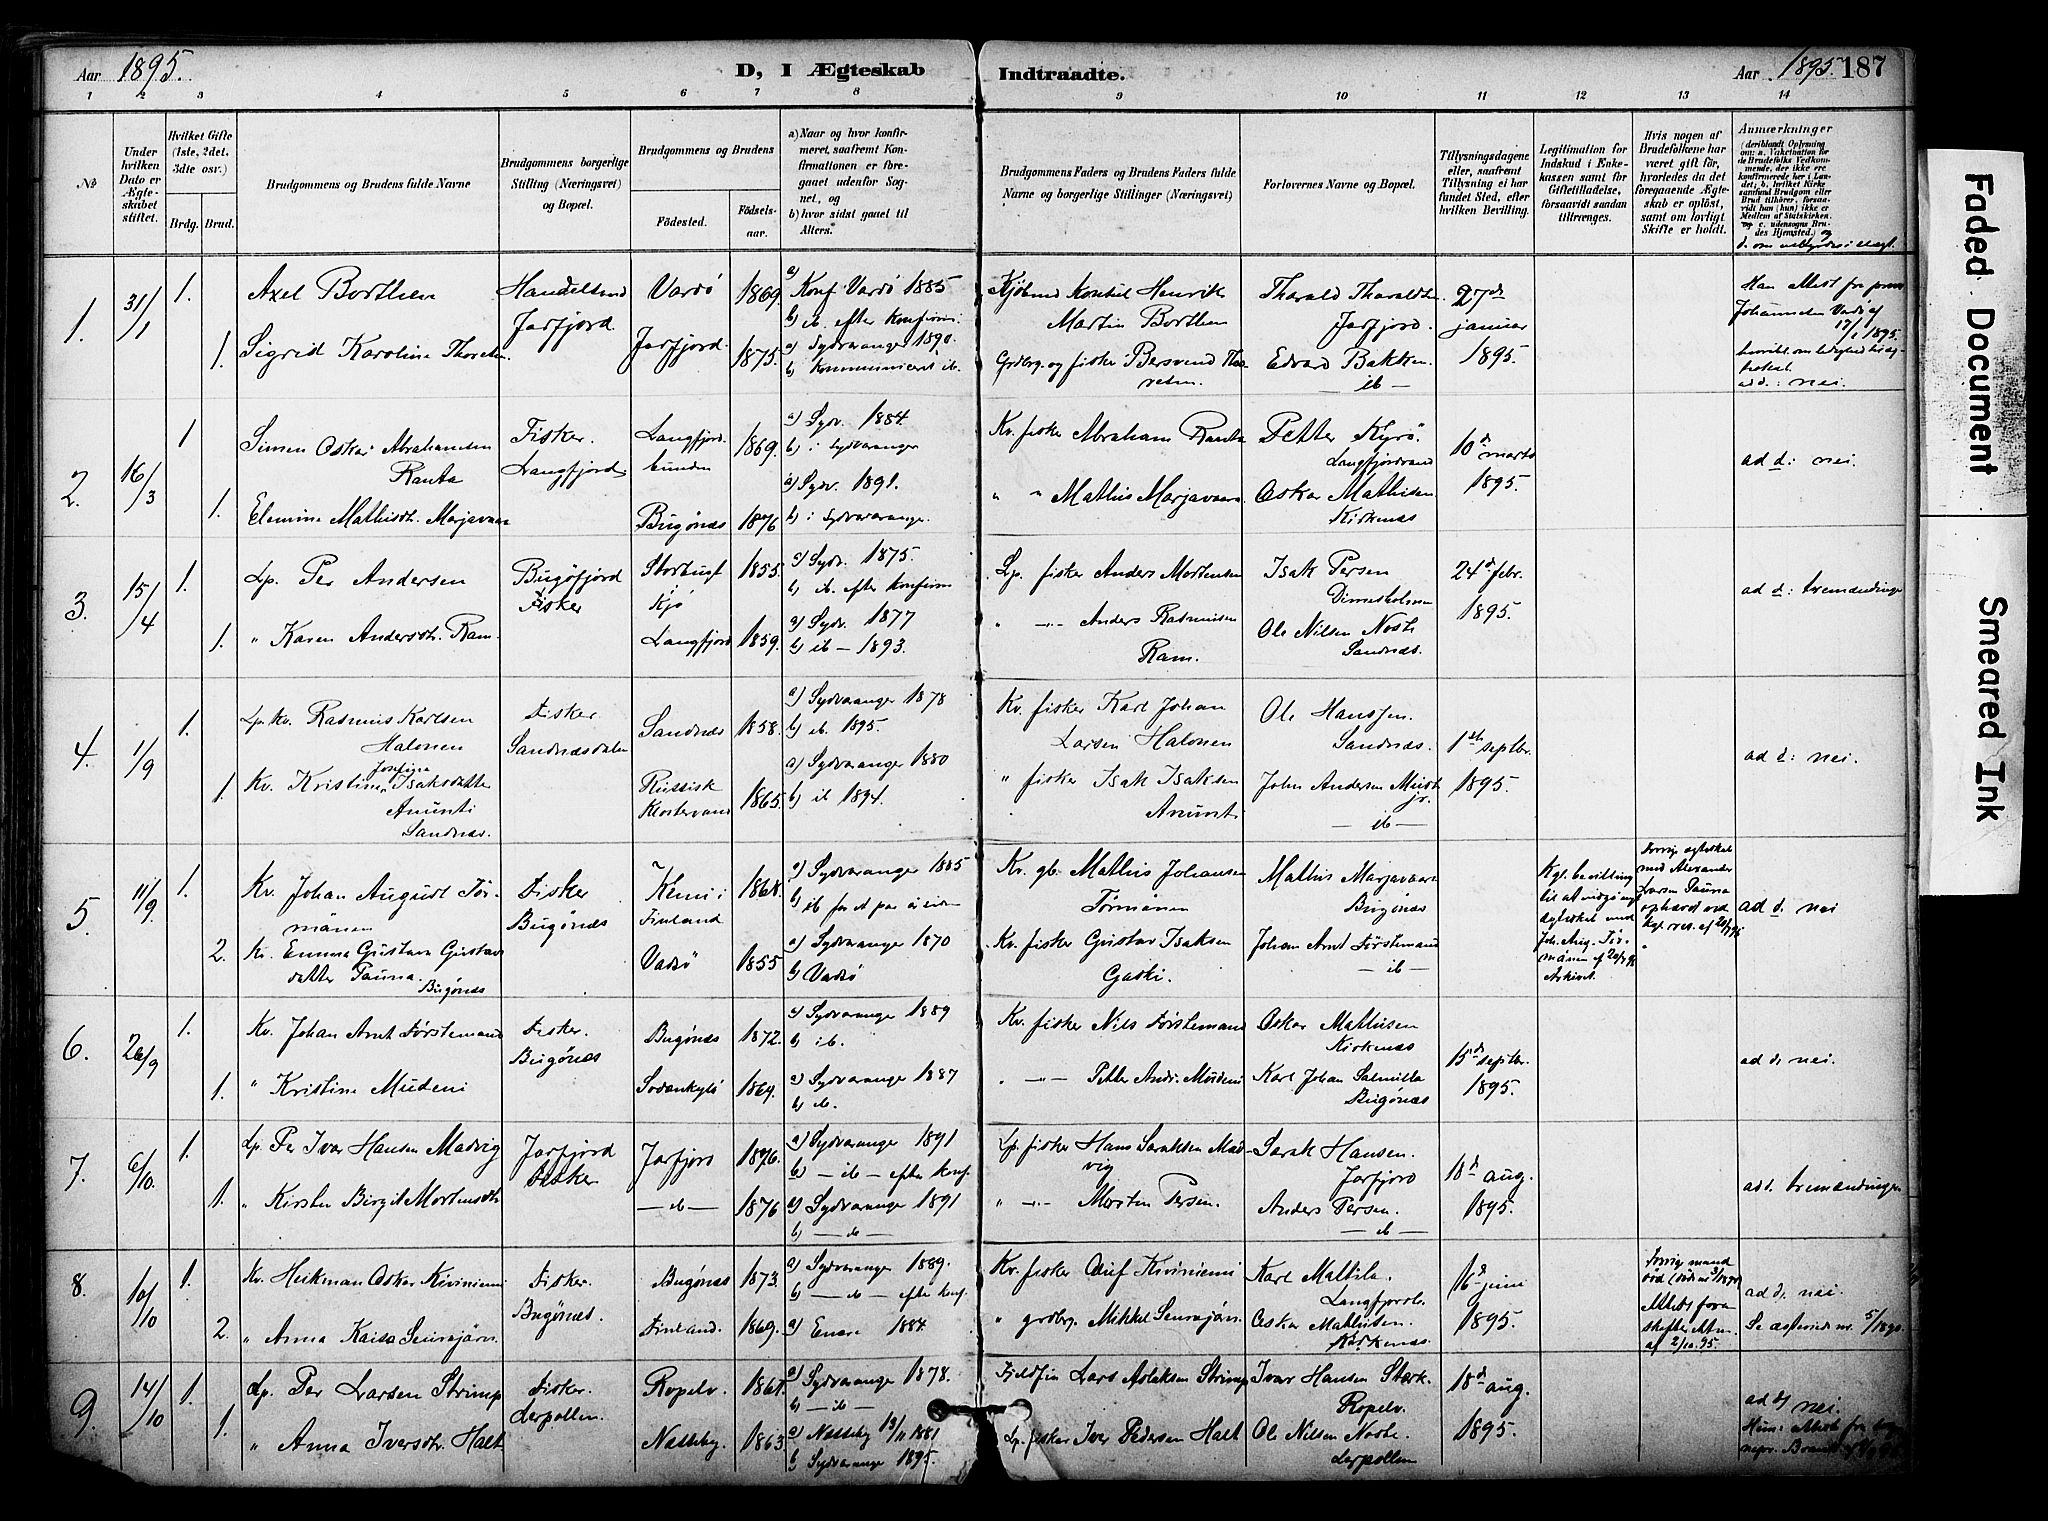 Aar 1895.
D, I Ægteskab
Indtraadte.
Aar 1895. 187
1 2 3 4 5 6 7 8 9 10 11 12 13 14
№
Under hvilken Dato er Ægteskabet stiftet.
Hvilket Gifte (1ste, 2det, 3dte osv.)
Brdg. Brud.
Brudgommens og Brudens fulde Navne
Brudgommens borgerlige Stilling (Næringsvei) og Bopæl.
Brudgommens og Brudens
Fødested.
Fødselsaar.
a) Naar og hvor konfirmeret, saafremt Konfirmationen er foregaaet udenfor Sognet, og
b) hvor sidst gaaet til Alters.
Brudgommens Faders og Brudens Faders fulde Navne og borgerlige Stillinger (Næringsvei)
Forlovernes Navne og Bopæl.
Tillysningsdagene eller, saafremt Tillysning ei har fundet Sted, efter hvilken Bevilling.
Legitimation for Indskud i Enkekassen samt for Giftetilladelse, forsaavidt saadan tiltrænges.
Hvis nogen af Brudefolkene har været gift før, hvorledes da det foregaaende Ægteskab er opløst, samt om lovligt Skifte er holdt.
Anmærkninger (deriblandt Oplysning om: a. Vakcination for de Brudefolks Vedkommende, der ikke ere konfirmerede her i Landet; b. hvilket Kirkesamfund Brudgom eller Brud tilhører, forsaavidt han (hun) ikke er Medlem af Statskirken, og c. udensogns Brudes Hjemsted.) og
1. 31/1 1. Axel Borthen Handelsmd Jarfjord Vardø 1869. a) Konf. Vardø 1885
b) ib. efter konfirm:
Kjøbmd Konsul Henrik Martin Borthen
Tharald Tharaldsen Jarfjord.
27de januar 1895.
1. Sigrid Karoline Thoresen Jarfjord. 1875. a) Sydvaranger 1890.
b) kommuniceret ib.
Grdbrg. og fisker
Edvard Bakken — ib —
Han Attest fra
Johannesen Vadsø af 17/1 1895.
ad d.: nei.
2. 16/3 1 Simon Oskar Abrahamsen Ranta Fisker. Langfjord. Langfjordbunden 1869. a) Sydv. 1884.
b) i Sydvaranger
Kv. fisker Abraham Ranta
Petter Kyrö. Langfjordvand
10d marts 1895.
ad d: nei.
1. Elemine Mathisdtr. Marjavaara Bugønæs 1876 a) Sydv. 1891.
b) i Sydvaranger.
" " Mathis Marjavaara
Oskar Mathisen Kirkenæs
3. 15/4 1. Lp. Per Andersen Bugøfjord Fisker Storbugt Kjø 1855. a) Sydv. 1875.
b) ib. efter konfirm
Lp. fisker Anders Mortensen
Isak Persen Dimesholmen
24d febr. 1895.
ad d: tremænninge
1. " Karen Andersdtr. Ram. Langfjord 1859. a) Sydv. 1877
b) ib — 1893.
" —"— Anders Rasmusen Ram.
Ole Nilsen Noste Sandnæs.
4. 1/9 1. Lp. kv. Rasmus Karlsen Halonen Fisker Sandnæsdalen Sandnæs 1858. a) Sydvaranger 1878
b) ib. 1895.
Kv. fisker Karl Johan Larsen Halonen
Ole Hanssen. Sandnæs.
1ste septbr. 1895.
ad d: nei.
1. Kv. Kristine Josefine Isaksdatter Anunti Sandnæs. Russisk Klostervand 1865. a) Sydvaranger 1880
b) ib 1894.
" fisker Isak Isaksen Anunti
John Andersen Must jr. — ib —
5. 11/9 1. Kv. Johan August Törmänen Fisker Bugønæs Kemi i Finland 1868. a) Sydvaranger 1885
b) ib for et par år siden
Kv. gb. Mathis Johansen Törmänen
Mathis Marjavaara Bugønæs
Kgl. bevilling til at indgå nyt ægteskab med Joh. Aug. Törmänen af
Arkivet.
Forrige ægteskab med Alexander Larsen Pauna ophævet ved kgl. res. af
ad d. nei
2. Kv. Emma Gustava Gustavsdatter Pauna. Bugønæs Vadsø 1855 a) Sydvaranger 1870
b) Vadsø
Kv. fisker Gustav Isaksen Gaski.
Johan Arnt Førstemand — ib —
6. 26/9 1. Kv. Johan Arnt Førstemand Fisker. Bugønæs Bugønæs 1872. a) Sydvaranger 1889
b) ib.
Kv. fisker Nils Førstemand
Oskar Mathisen Kirkenæs
15d septbr. 1895.
ad d. nei.
1. " Kristine Mudeni Sodankylö 1864. a) Sydvaranger 1887
b) ib.
" —"— Petter Andr. Mudeni
Karl Johan Salmilla Bugønæs
7. 6/10. 1. Lp. Per Ivar Hansen Madvig Jarfjord Fisker Jarfjord 1876. a) Sydvaranger 1891
b) — ib — efter konf.
Lp. fisker Hans Saraksen Madvig
Sarak Hansen. Jarfjord
18d aug. 1895.
ad d. tremænninger
1. " Kirsten Birgit Mortensdtr — ib — 1876 a) Sydvaranger 1891
b) — ib —
" —"— Morten Persen.
Anders Persen. — ib —
8. 10/10 1. Kv. Heikman Oskar Kiviniemi Fisker. Bugønæs. Bugønæs 1873. a) Sydvaranger 1889.
b) — ib — efter konf.
Kv. fisker Oluf Kiviniemi
Karl Mattila. Langfjordb.
16d juni 1895.
forrige mand død
ad d. nei.
2. " Anna Kaisa Seurujärvi Finland. 1869. a) Enare 1884.
" grdbrg. Mikkel Seurujärvi.
Oskar Mathisen. Kirkenæs
skifter
af 2/10. 95.
9. 14/10 1. Lp. Per Larsen Strimp Fisker. Lerpollen. Ropelv. 1861. a) Sydvaranger 1878.
b) — ib —
Fjeldfin Lars Aslaksen Strimp
Ivar Hansen Stærk. Ropelv.
18d aug. 1895.
ad d) nei.
1. " Anna Iversdtr. Halt Næsseby. 1863. a) Næsseby 13/11 1881
b) Sydvaranger 1895.
Lp. fisker Iver Pedersen Halt
Ole Nilsen Noste. Lerpollen
Hun: Attest fra
Faded Document
Smeared Ink